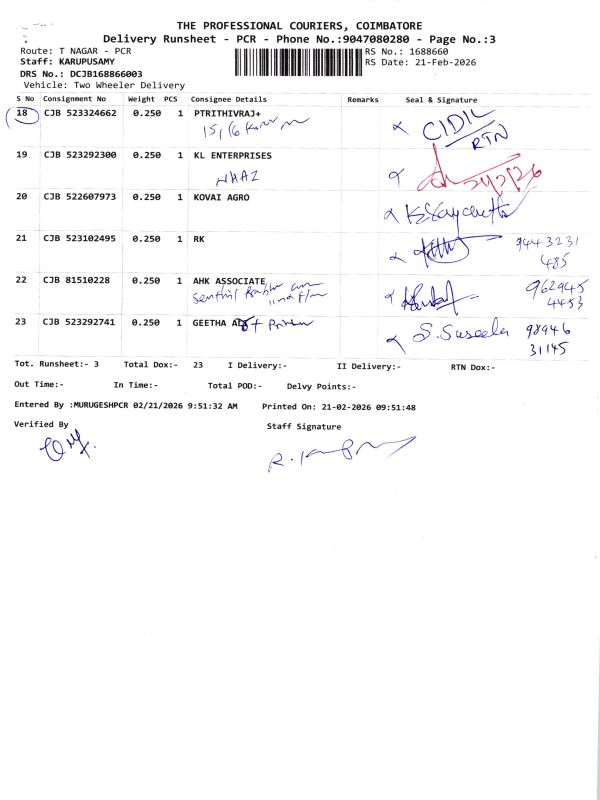 THE PROFESSIONAL COURIERS, COIMBATORE
Delivery Runsheet - PCR - Phone No.:9047080280 - Page No.:3
Route: T NAGAR - PCR RS No.: 1688660
Staff: KARUPUSAMY RS Date: 21-Feb-2026
DRS No.: DCJB168866003
Vehicle: Two Wheeler Delivery
S No Consignment No Weight PCS Consignee Details Remarks Seal & Signature
18 CJB 523324662 0.250 1 PTRITHIVRAJ+
CIDIL
RTN
19 CJB 523292300 0.250 1 KL ENTERPRISES
20 CJB 522607973 0.250 1 KOVAI AGRO
21 CJB 523102495 0.250 1 RK 9443231
485
22 CJB 81510228 0.250 1 AHK ASSOCIATE 962945
4453
23 CJB 523292741 0.250 1 GEETHA S. Suseela 98946
31145
Tot. Runsheet:- 3 Total Dox:- 23 I Delivery:- II Delivery:- RTN Dox:-
Out Time:- In Time:- Total POD:- Delvy Points:-
Entered By :MURUGESHPCR 02/21/2026 9:51:32 AM Printed On: 21-02-2026 09:51:48
Verified By Staff Signature